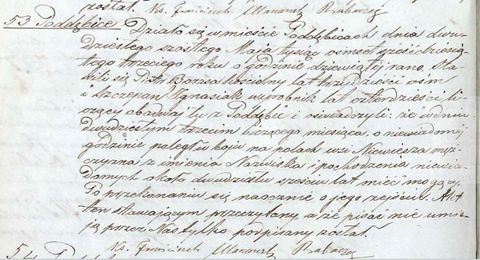 został.
53 Poddębice Działo się w mieście Poddębicach dnia dwu-
dziestego szóstego Maja tysiąc ośmset sześćdziesią-
tego trzeciego roku o godzinie dziewiątej rano, sta-
wili się, Piotr Borwa kościelny lat trzydzieści ośm
i Szczepan Ignasiak wyrobnik lat czterdzieści li-
czący obadwaj tu z Poddębic i oświadczyli; że w dniu
dwudziestym trzecim bieżącego miesiąca, o niewiadomej
godzinie poległ w boju na polach wsi Niewiesza męż-
czyzna z imienia Nazwiska i pochodzenia niewia-
domych około dwudziestu sześciu lat mieć mogący.
Po przekonaniu się naocznie o jego zejściu. Akt
ten stawającym przeczytany, a że pisać nie umie-
ją przez Nas tylko podpisany został.
54